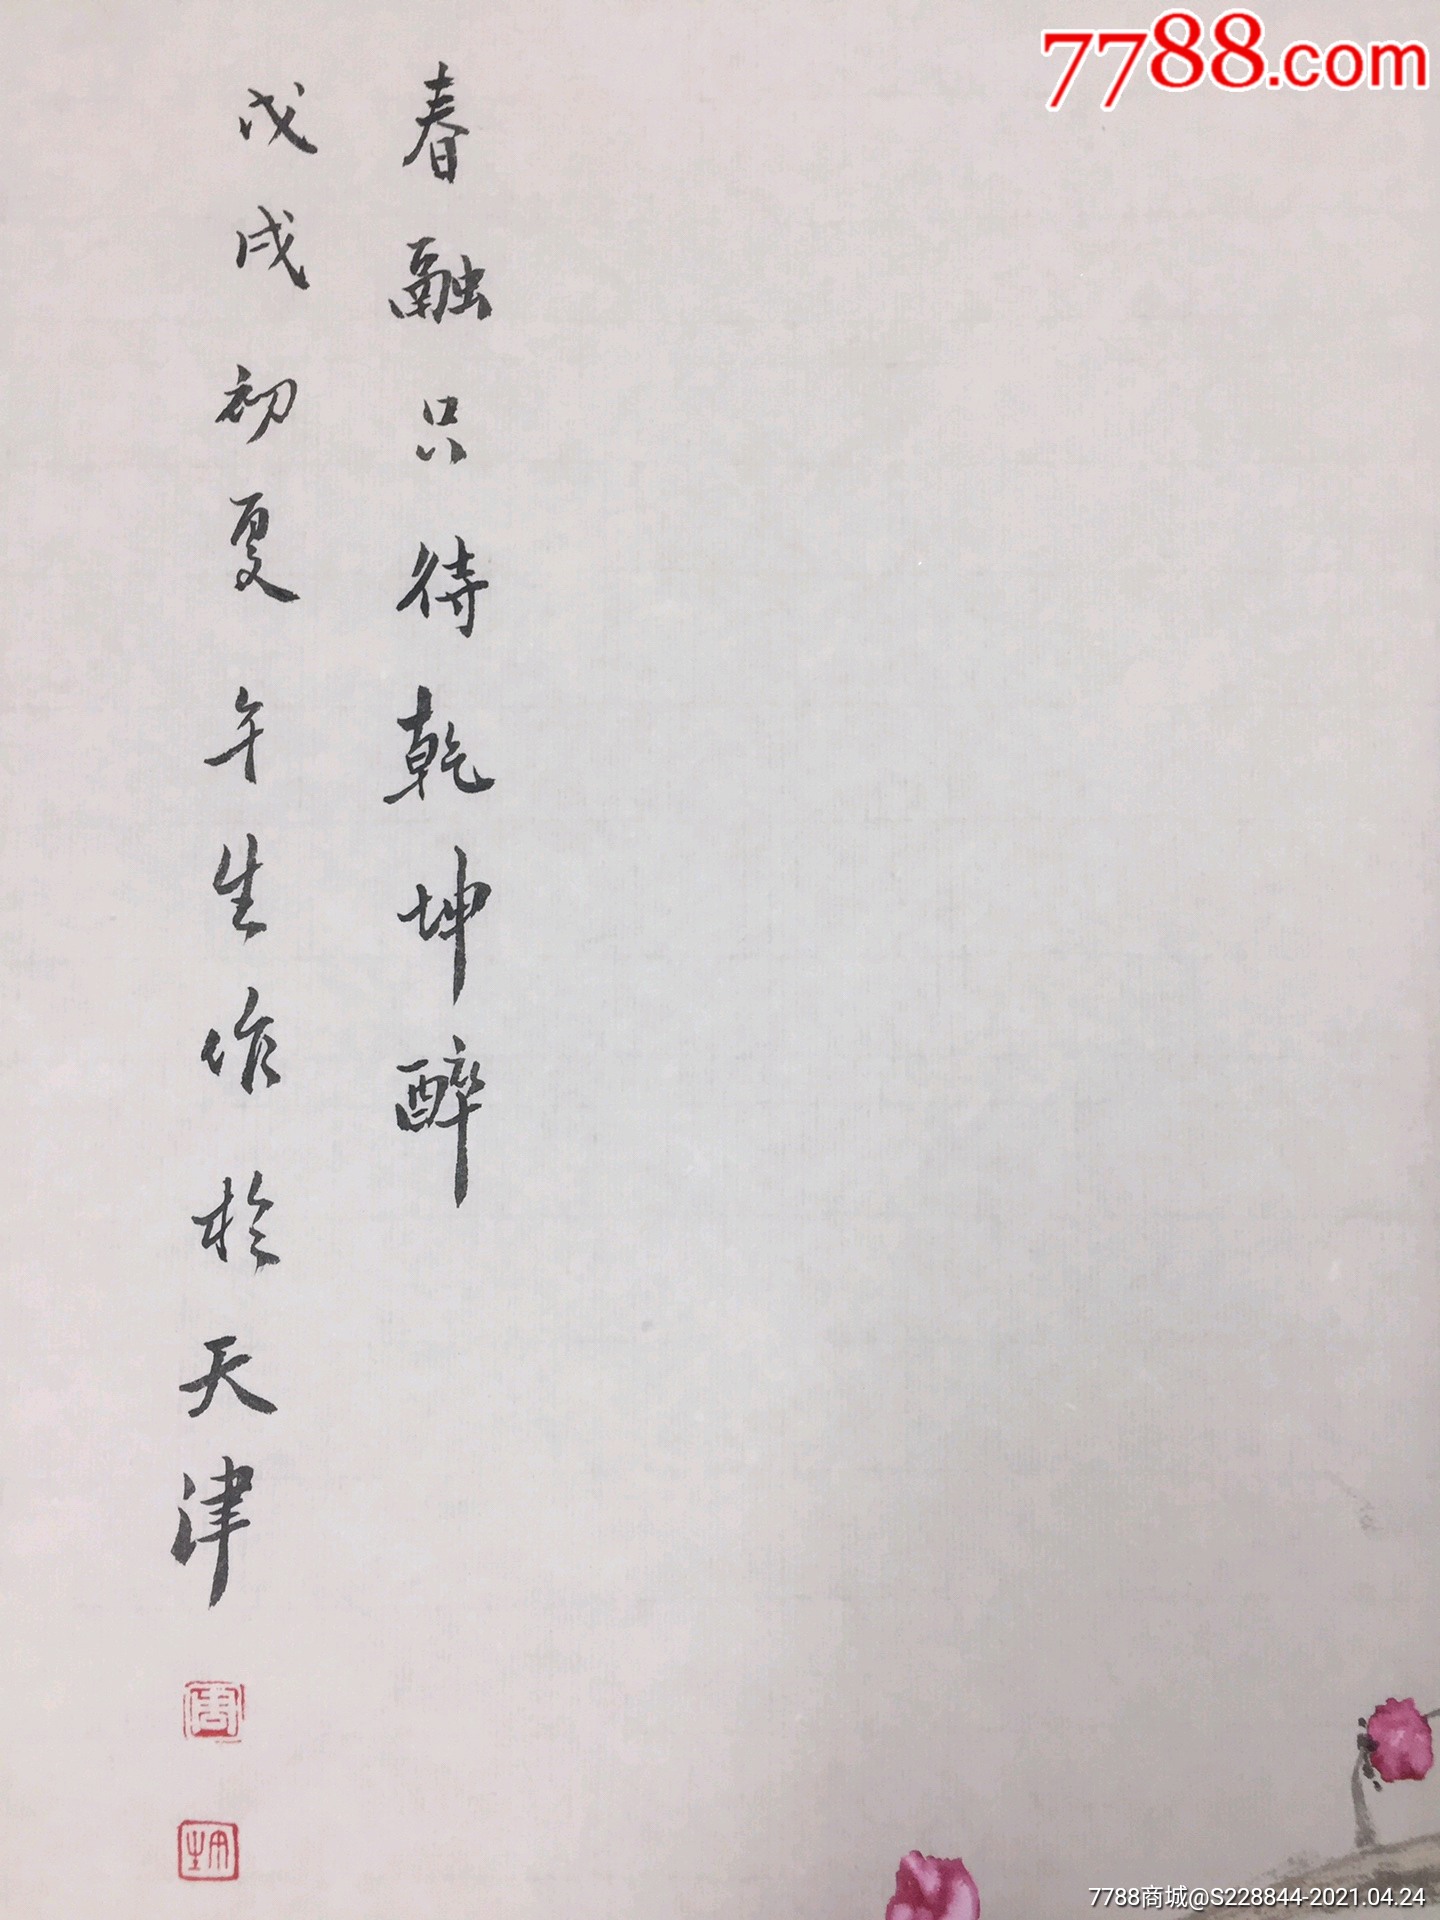 7788.com
春融只待乾坤醉
戊戌初夏午生作於天津
7788商城@S228844-2021.04.24